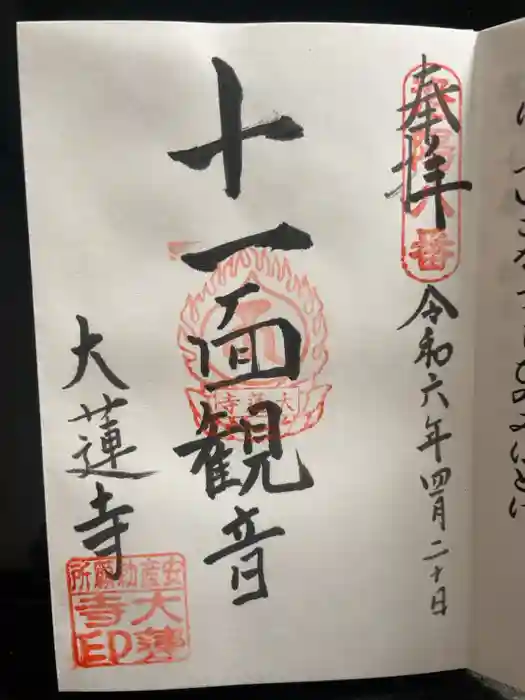 奉拝
洛陽八番
令和六年四月二十日
十一面観音
大蓮寺
大蓮寺
安産勅願所
大蓮寺印